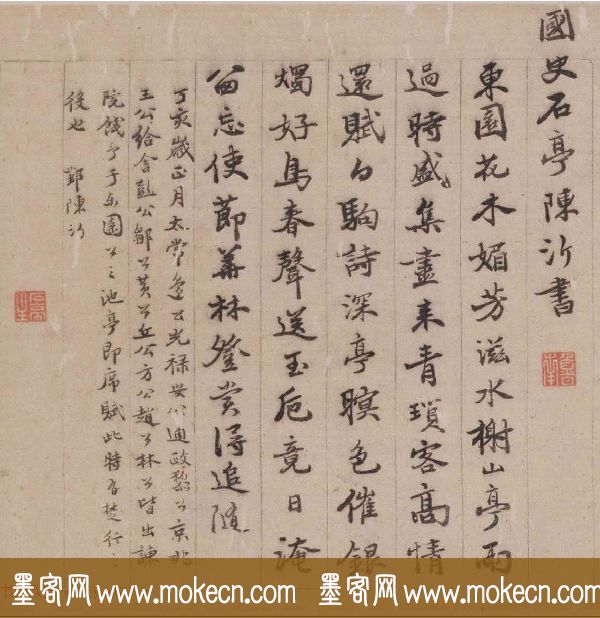 國史石亭陳沂書
東園花木媚芳滋水榭山亭雨
過時盛集盡來青瑣客高情
還賦白駒詩深亭暝色催銀
燭好鳥春聲送玉巵竟日淹
留忘使節華林登賞得追隨
丁亥歲正月太常邊公光祿安公通政黎公京兆
王公給舍彭公鄒公黃公丘公方公趙公林公皆出諫
院餞予于東園公之池亭即席賦此時有楚行之
役也 鄞陳沂
墨客网www.mokecn.com 墨客网www.mokecn.com